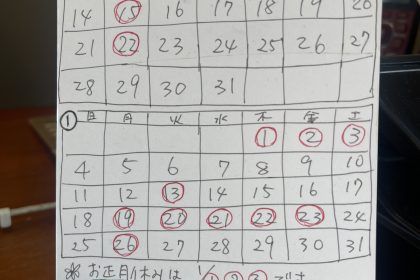 14 15 16 17 18 19 20
21 22 23 24 25 26 27
28 29 30 31
① 日 月 火 水 木 金 土
1 2 3
4 5 6 7 8 9 10
11 12 13 14 15 16 17
18 19 20 21 22 23 24
25 26 27 28 29 30 31
※ お正月休みは 1 2 3 です